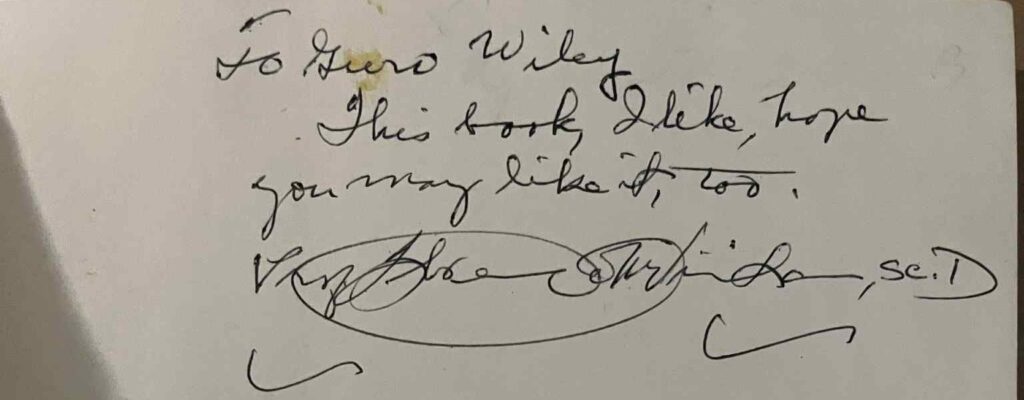 To Guro Wiley
This book, I like, hope
you may like it, too.
, Sc.D